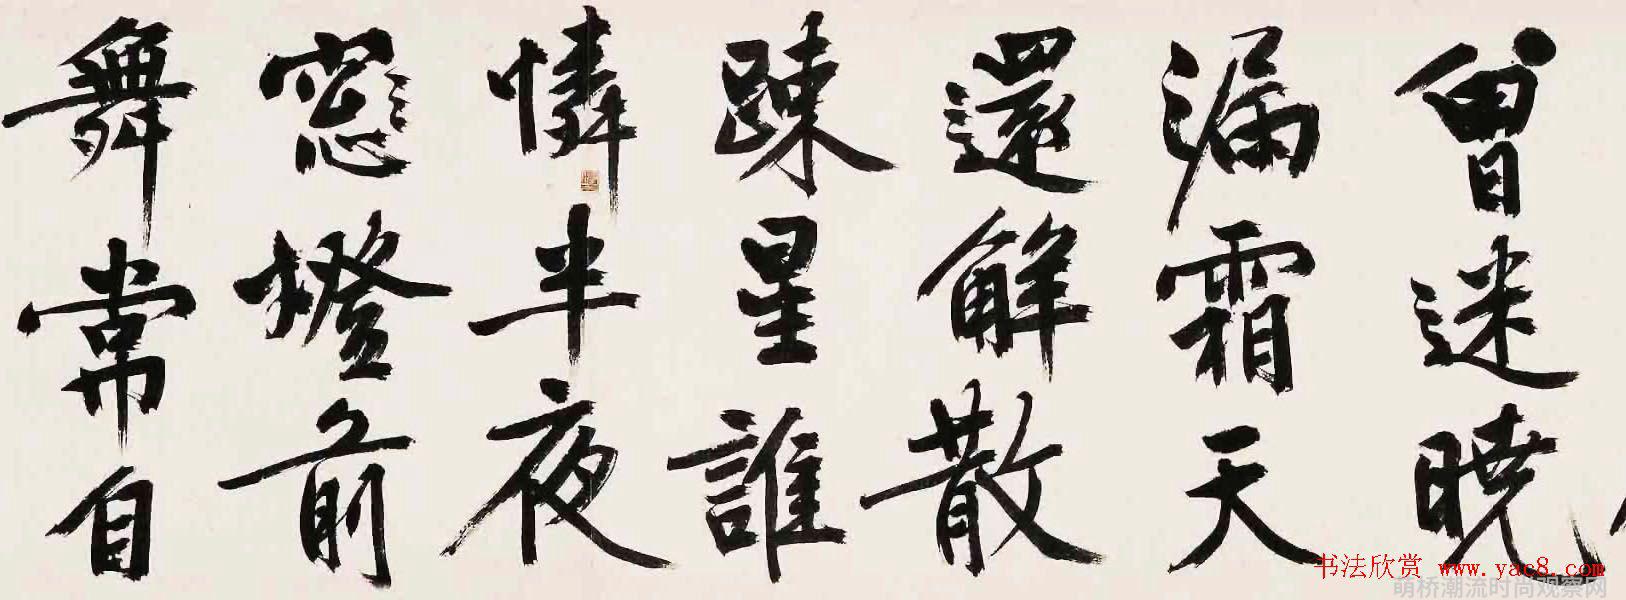 曾迷曉
漏霜天
還解散
踈星誰
憐半夜
窓燈前
舞常自
书法欣赏 www.yac8.com
萌桥潮流时尚观察网